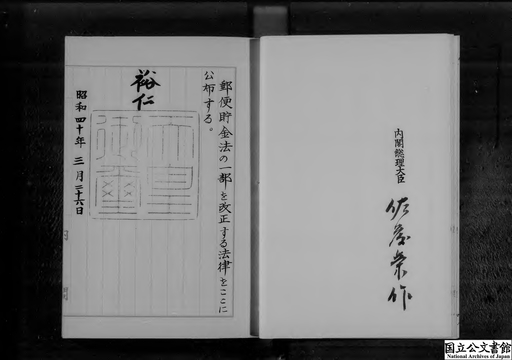 郵便貯金法の一部を改正する法律をここに
公布する。
裕仁
天皇
御璽
昭和四十年三月二十六日
内閣総理大臣
佐藤榮作
国立公文書館
National Archives of Japan